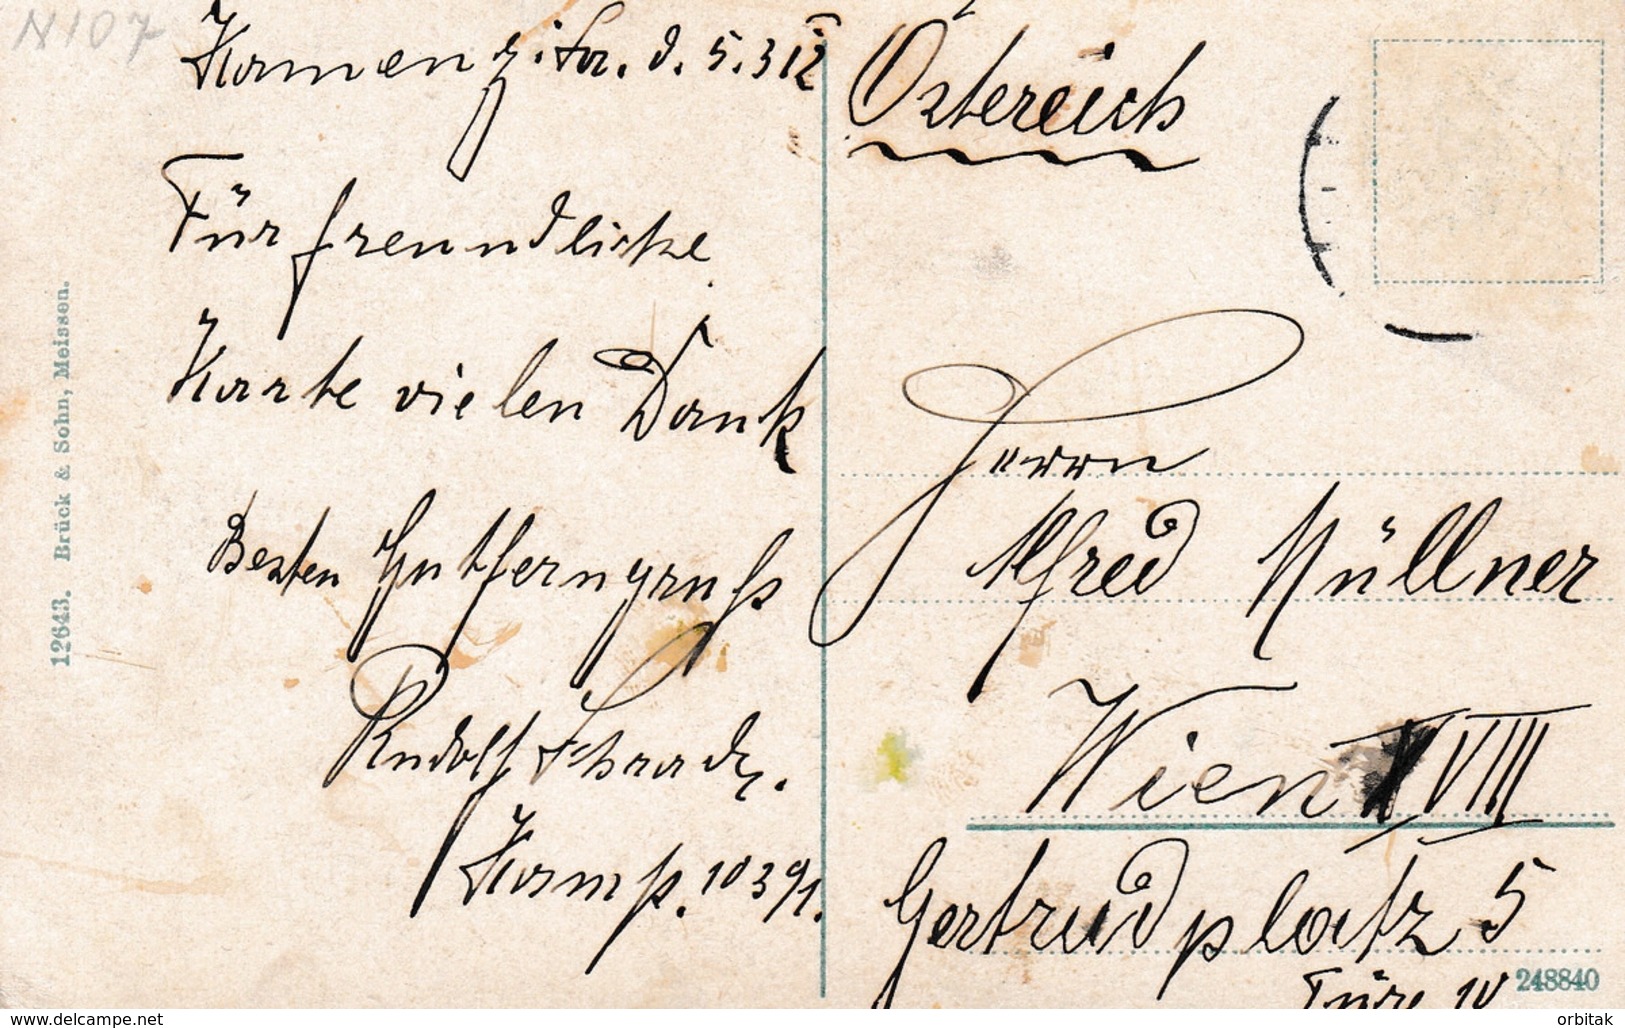 N107
Kamenz i. Sa. d. 5. 3 12
Für freundliche
Karte vielen Dank
Besten Gutferngruß
Rudolf
Kamenz i. Sa.
12643. Brück & Sohn, Meissen.
Östereich
Herrn
Alfred Müllner
Wien XVIII
Gertrudplatz 5
Türe 10
248840
www.delcampe.net
orbitak